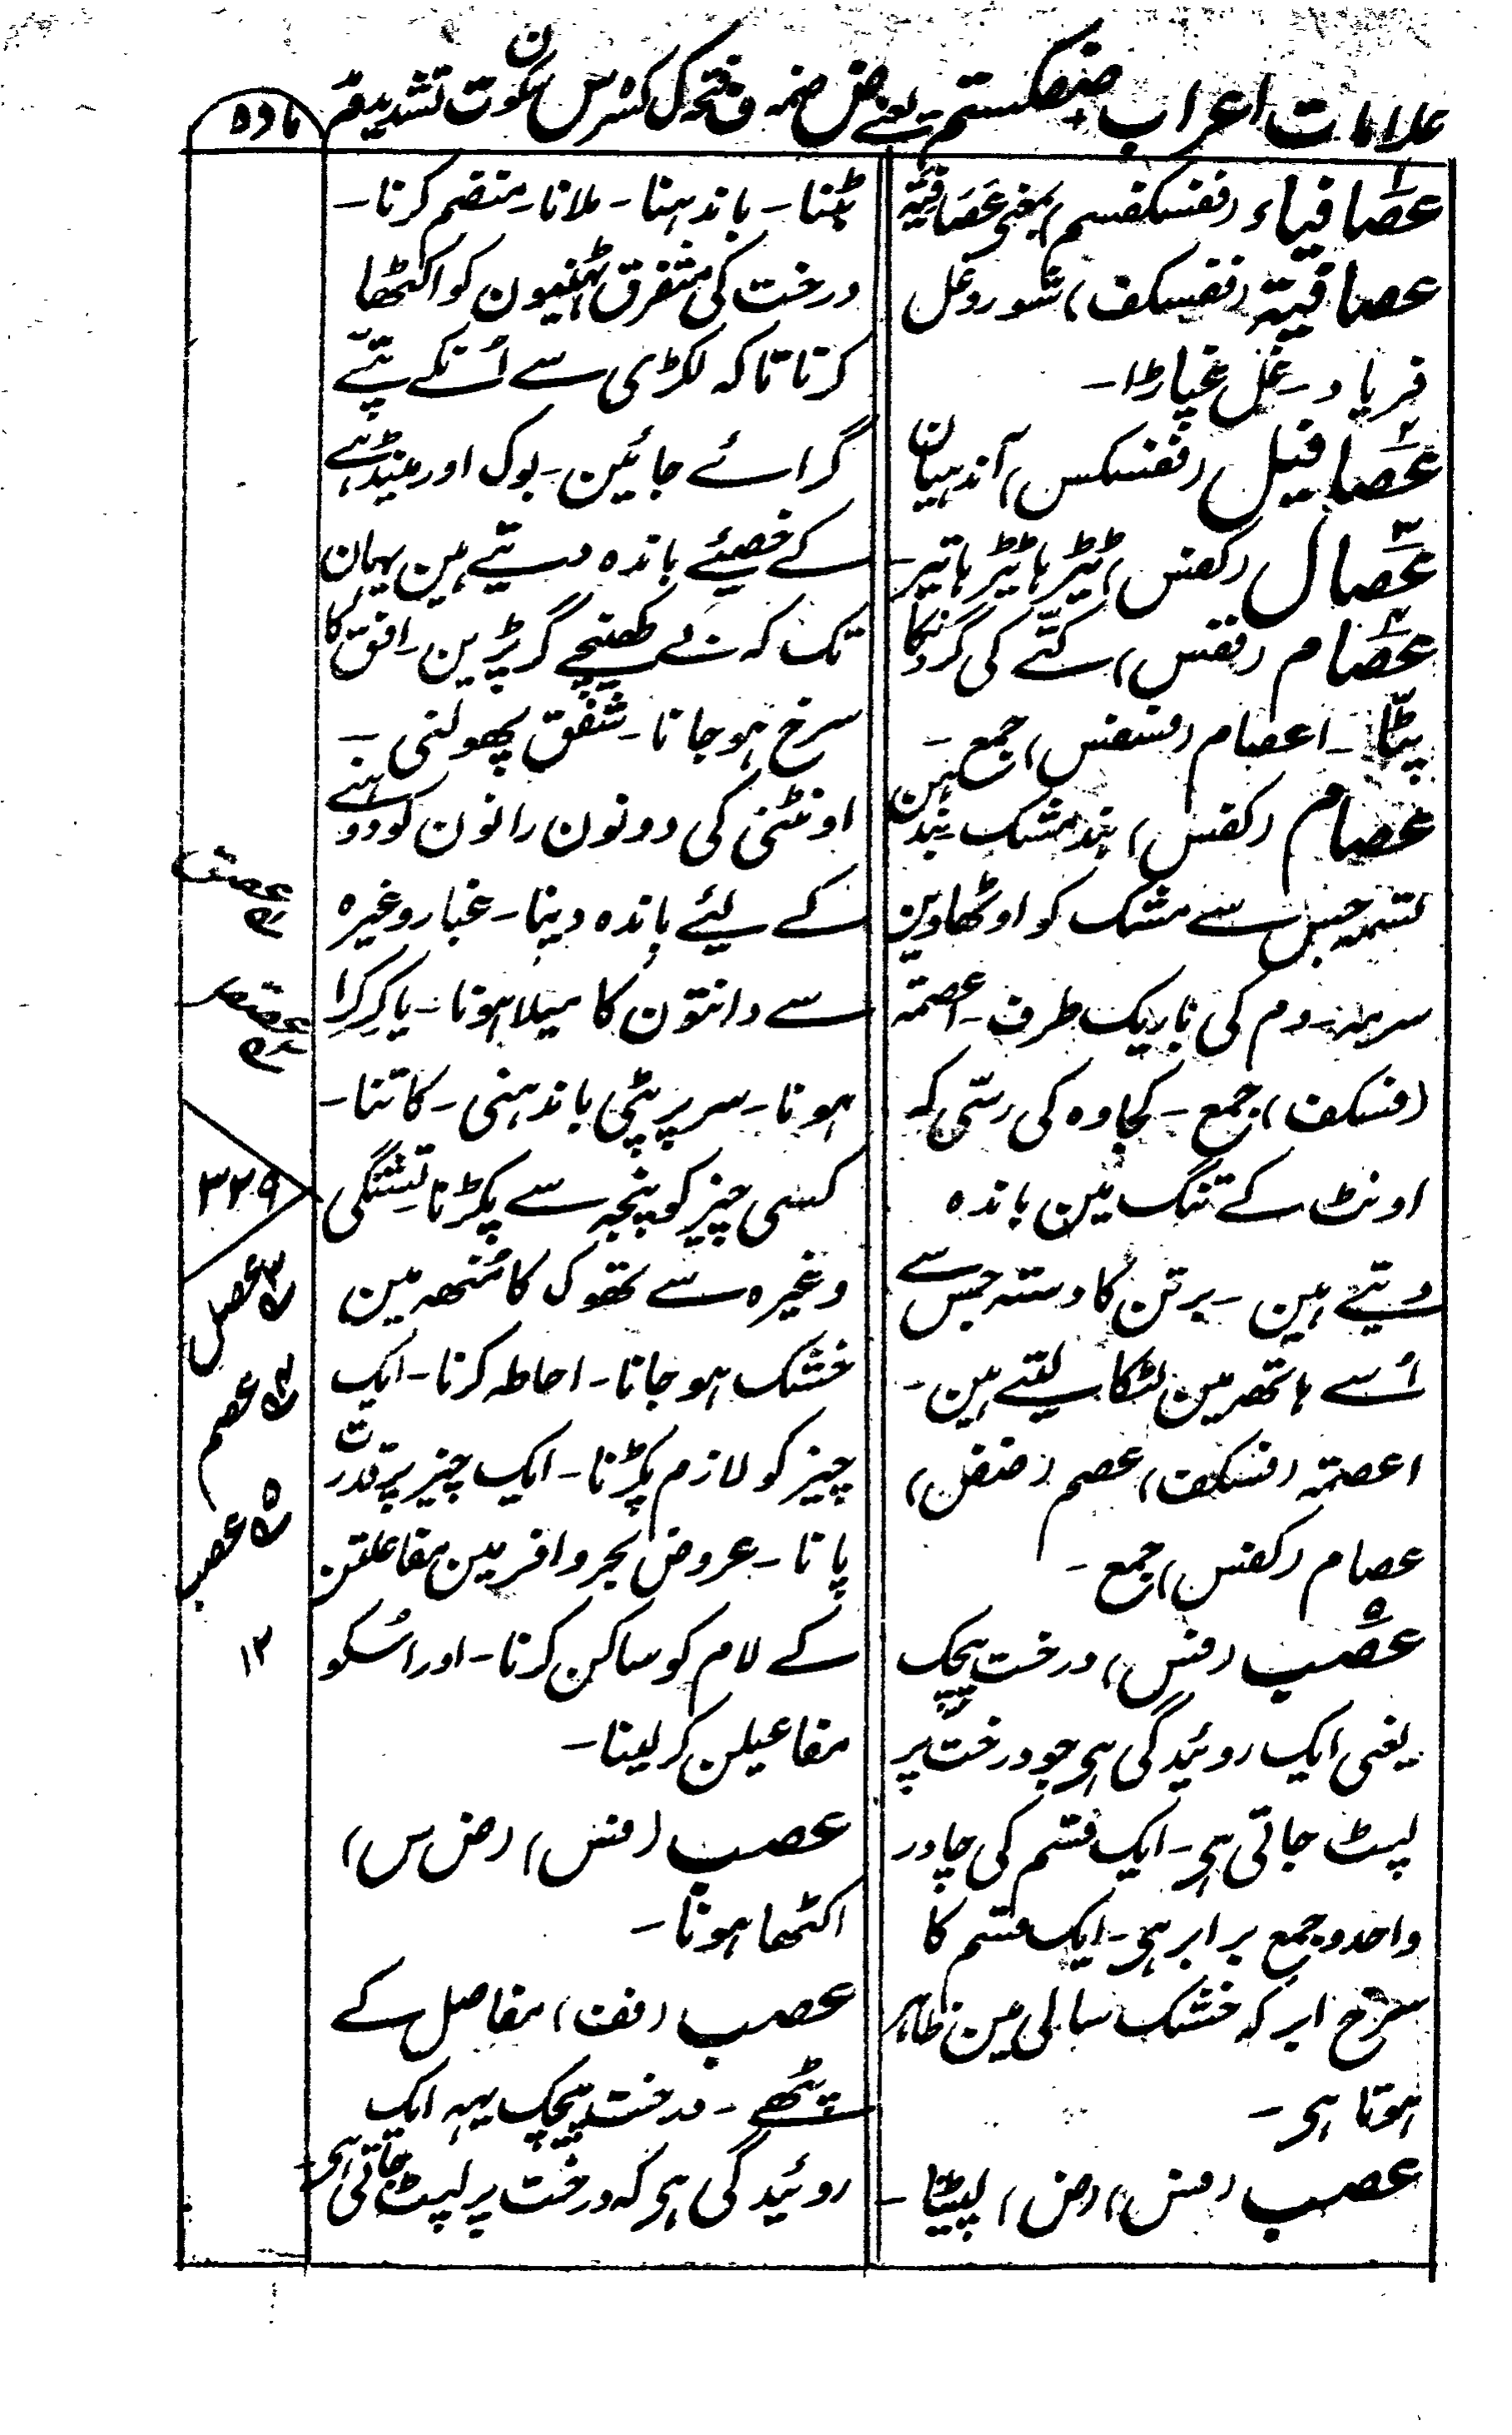 علامات اعراب ضفکستم یعنے ض ضمہ ف فتحہ ک کسرہ س سکون ت تشدید م
مادہ
عصافیاء (ففسکفسم) بمعنی عَصَافِیَہ
عصافیۃ (ففسکف) شور و غل
فریاد ۔ غل غپاڑا ۔
عصافیل (ففسکس) آندہیان
عصال (کفس) ٹیڑہا ٹیڑہا تیر ۔
عصام (ففس) کتّے کی گردن کا
پٹّا ۔ اعصام (فسفس) جمع ۔
عصام (کفس) بند مشک ۔ بندہن
تسمہ جس سے مشک کو اوٹھاوین
سرمہ ۔ دم کی باریک طرف ۔ اعصمۃ
(فسکف) جمع ۔ کجاوہ کی رسّی کہ
اونٹ کے تنگ مین باندہ
دیتے ہین ۔ برتن کا دستہ جس سے
اُسے ہاتھ مین لٹکا لیتے ہین ۔
اعصمۃ (فسکف) عصم (ضفس)
عصام (کفس) جمع ۔
عصب (فس) درخت پیچک
یعنی ایک روئیدگی ہی جو درخت پر
لپٹ جاتی ہی ۔ ایک قسم کی چادر
واحد و جمع برابر ہی ۔ ایک قسم کا
سرخ ابر کہ خشک سالی مین ظاہر
ہوتا ہی ۔
عصب (فس) (ض) لپیٹنا ۔
بٹنا ۔ باندہنا ۔ ملانا ۔ منضم کرنا ۔
درخت کی متفرق ٹہنیون کو اکٹھا
کرنا تاکہ لکڑی سے اُنکے پتّے
گرائے جائین ۔ بوک اور مینڈہے
کے خصیئے باندہ دیتے ہین یہان
تک کہ بے کھینچے گر پڑین ۔ افق کا
سرخ ہو جانا ۔ شفق پھولنی ۔
اونٹنی کی دونون رانون کو دوہنے
کے لیئے باندہ دینا ۔ غبار وغیرہ
سے دانتون کا میلا ہونا ۔ یا کِرکِرا
ہونا ۔ سر پر پٹّی باندہنی ۔ کاتنا ۔
کسی چیز کو پنجہ سے پکڑنا تشنگی
وغیرہ سے تھوک کا مُنھ مین
خشک ہو جانا ۔ احاطہ کرنا ۔ ایک
چیز کو لازم پکڑنا ۔ ایک چیز پر قدرت
پانا ۔ عروض بحر وافر مین مفاعلتن
کے لام کو ساکن کرنا ۔ اور اُسکو
مفاعیلن کر لینا ۔
عصب (فس) (ض س)
اکٹھا ہونا ۔
عصب (فف) مفاصل کے
پٹھے ۔ درخت پیچک یہہ ایک
روئیدگی ہی کہ درخت پر لپٹ جاتی ہی ۔
۳۲۹
۳ عصل
۴ عصم
۵ عصب
۱۲